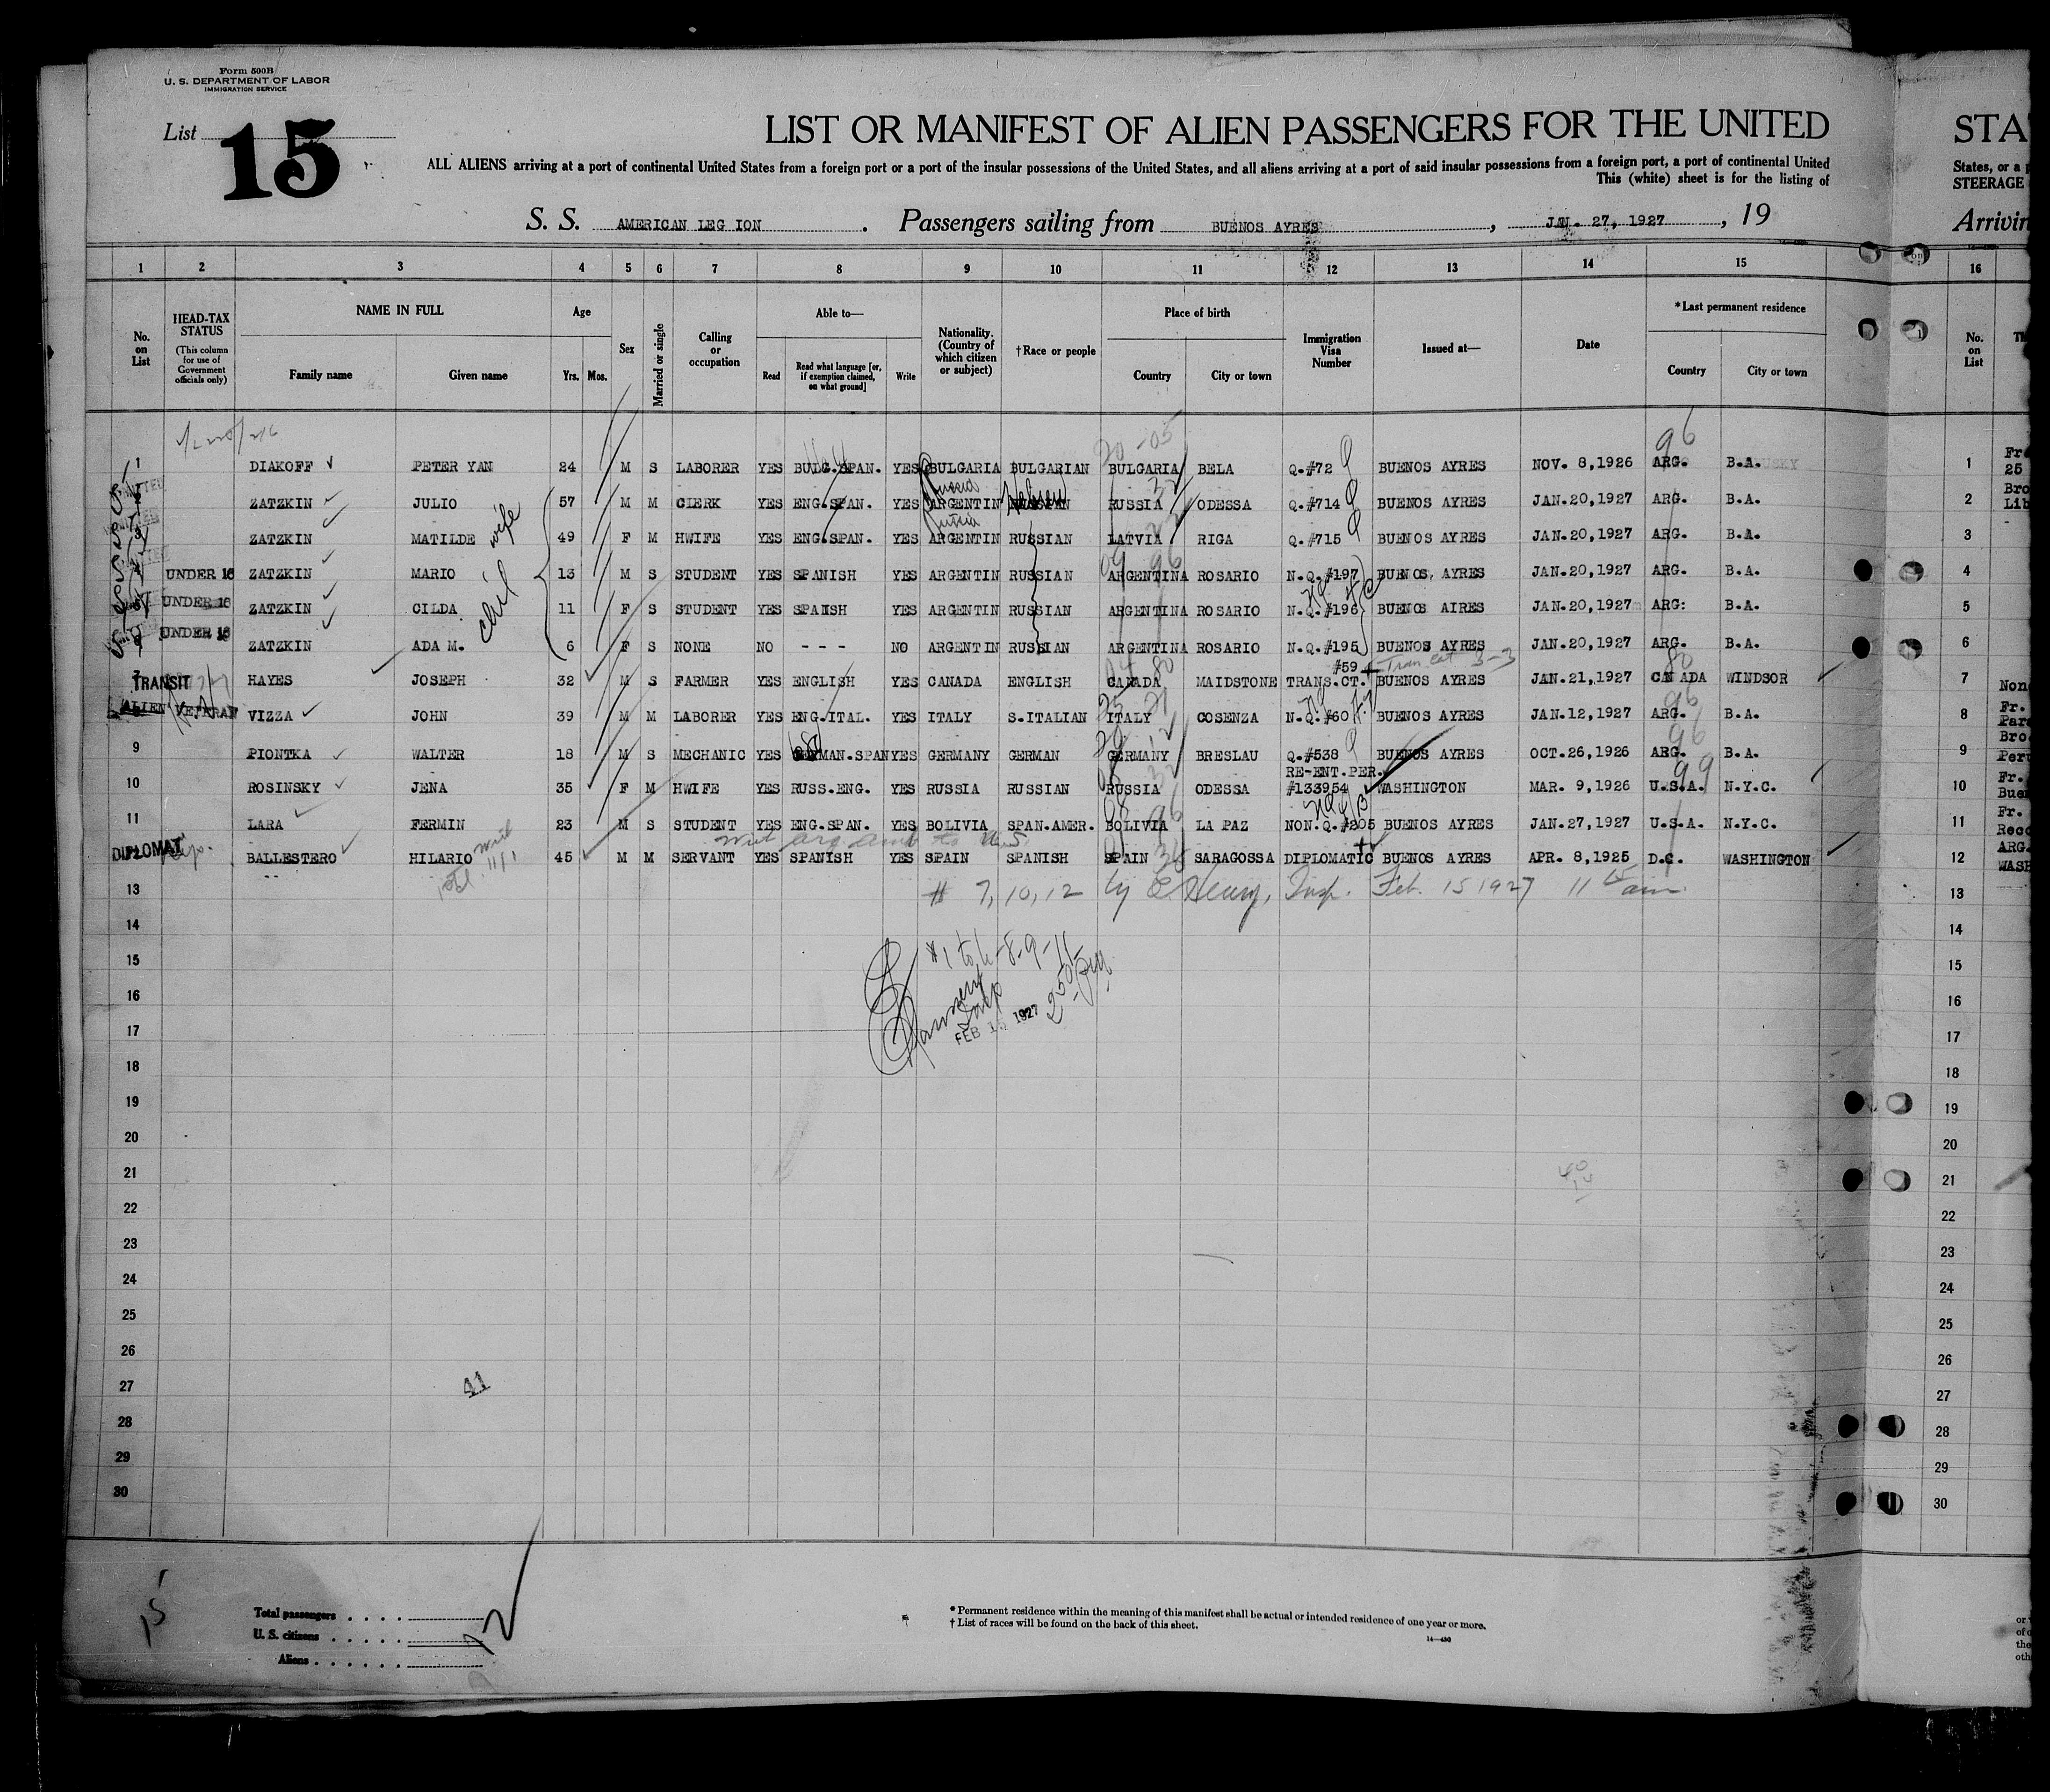 Form 500B
U. S. DEPARTMENT OF LABOR
IMMIGRATION SERVICE
List 15
LIST OR MANIFEST OF ALIEN PASSENGERS FOR THE UNITED
STA
ALL ALIENS arriving at a port of continental United States from a foreign port or a port of the insular possessions of the United States, and all aliens arriving at a port of said insular possessions from a foreign port, a port of continental United
States, or a
This (white) sheet is for the listing of
STEERAGE
S. S. AMERICAN LEG ION . Passengers sailing from BUENOS AYRES , JAN. 27, 1927 , 19
Arrivin
1 2 3 4 5 6 7 8 9 10 11 12 13 14 15 16
No. on List
HEAD-TAX STATUS (This column for use of Government officials only)
NAME IN FULL
Family name Given name
Age
Yrs. Mos.
Sex
Married or single
Calling or occupation
Able to—
Read Read what language [or, if exemption claimed, on what ground] Write
Nationality. (Country of which citizen or subject)
†Race or people
Place of birth
Country City or town
Immigration Visa Number
Issued at—
Date
*Last permanent residence
Country City or town
No. on List
20-05 96
1 DIAKOFF PETER YAN 24 M S LABORER YES BULG.SPAN. YES BULGARIA BULGARIAN BULGARIA BELA Q.#72 BUENOS AYRES NOV. 8,1926 ARG. B.A. 1
Russia
2 ZATZKIN JULIO 57 M M CLERK YES ENG.SPAN. YES ARGENTIN Hebrew RUSSIA ODESSA Q.#714 BUENOS AYRES JAN.20,1927 ARG. B.A. 2
Russia
3 ZATZKIN MATILDE wife 49 F M HWIFE YES ENG.SPAN. YES ARGENTIN RUSSIAN LATVIA RIGA Q.#715 BUENOS AYRES JAN.20,1927 ARG. B.A. 3
4 UNDER 16 ZATZKIN MARIO 13 M S STUDENT YES SPANISH YES ARGENTIN RUSSIAN ARGENTINA ROSARIO N.Q.#197 BUENOS, AYRES JAN.20,1927 ARG. B.A. 4
5 UNDER 16 ZATZKIN CILDA chil 11 F S STUDENT YES SPAISH YES ARGENTIN RUSSIAN ARGENTINA ROSARIO N.Q.#196 BUENOS AIRES JAN.20,1927 ARG: B.A. 5
6 UNDER 16 ZATZKIN ADA M. 6 F S NONE NO - - - NO ARGENTIN RUSSIAN ARGENTINA ROSARIO N.Q.#195 BUENOS AYRES JAN.20,1927 ARG. B.A. 6
#59 3-3
7 TRANSIT HAYES JOSEPH 32 M S FARMER YES ENGLISH YES CANADA ENGLISH CANADA MAIDSTONE TRANS.CT. BUENOS AYRES JAN.21,1927 CANADA WINDSOR 7
8 ALIEN VETERAN VIZZA JOHN 39 M M LABORER YES ENG.ITAL. YES ITALY S.ITALIAN ITALY COSENZA N.Q.#60 BUENOS AYRES JAN.12,1927 ARG. B.A. 8
9 PIONTKA WALTER 18 M S MECHANIC YES GERMAN.SPAN YES GERMANY GERMAN GERMANY BRESLAU Q.#538 BUENOS AYRES OCT.26,1926 ARG. B.A. 9
RE-ENT.PER.
10 ROSINSKY JENA 35 F M HWIFE YES RUSS.ENG. YES RUSSIA RUSSIAN RUSSIA ODESSA #133954 WASHINGTON MAR. 9,1926 U.S.A. N.Y.C. 10
11 LARA FERMIN 23 M S STUDENT YES ENG.SPAN. YES BOLIVIA SPAN.AMER. BOLIVIA LA PAZ NON.Q.#205 BUENOS AYRES JAN.27,1927 U.S.A. N.Y.C. 11
12 DIPLOMAT BALLESTERO HILARIO 45 M M SERVANT YES SPANISH YES SPAIN SPANISH SPAIN SARAGOSSA DIPLOMATIC BUENOS AYRES APR. 8,1925 D.C. WASHINGTON 12
13 # 7, 10, 12 by Insp. Feb. 15 1927 11 15 am 13
14 14
15 #1 to 6-8-9-11 15
16 Insp 250 16
17 FEB 15 1927 17
18 18
19 19
20 20
21 21
22 22
23 23
24 24
25 25
26 26
27 41 27
28 28
29 29
30 30
15
Total passengers . . . .
U. S. citizens . . . . .
Aliens . . . . . .
12
* Permanent residence within the meaning of this manifest shall be actual or intended residence of one year or more.
† List of races will be found on the back of this sheet.
14—430